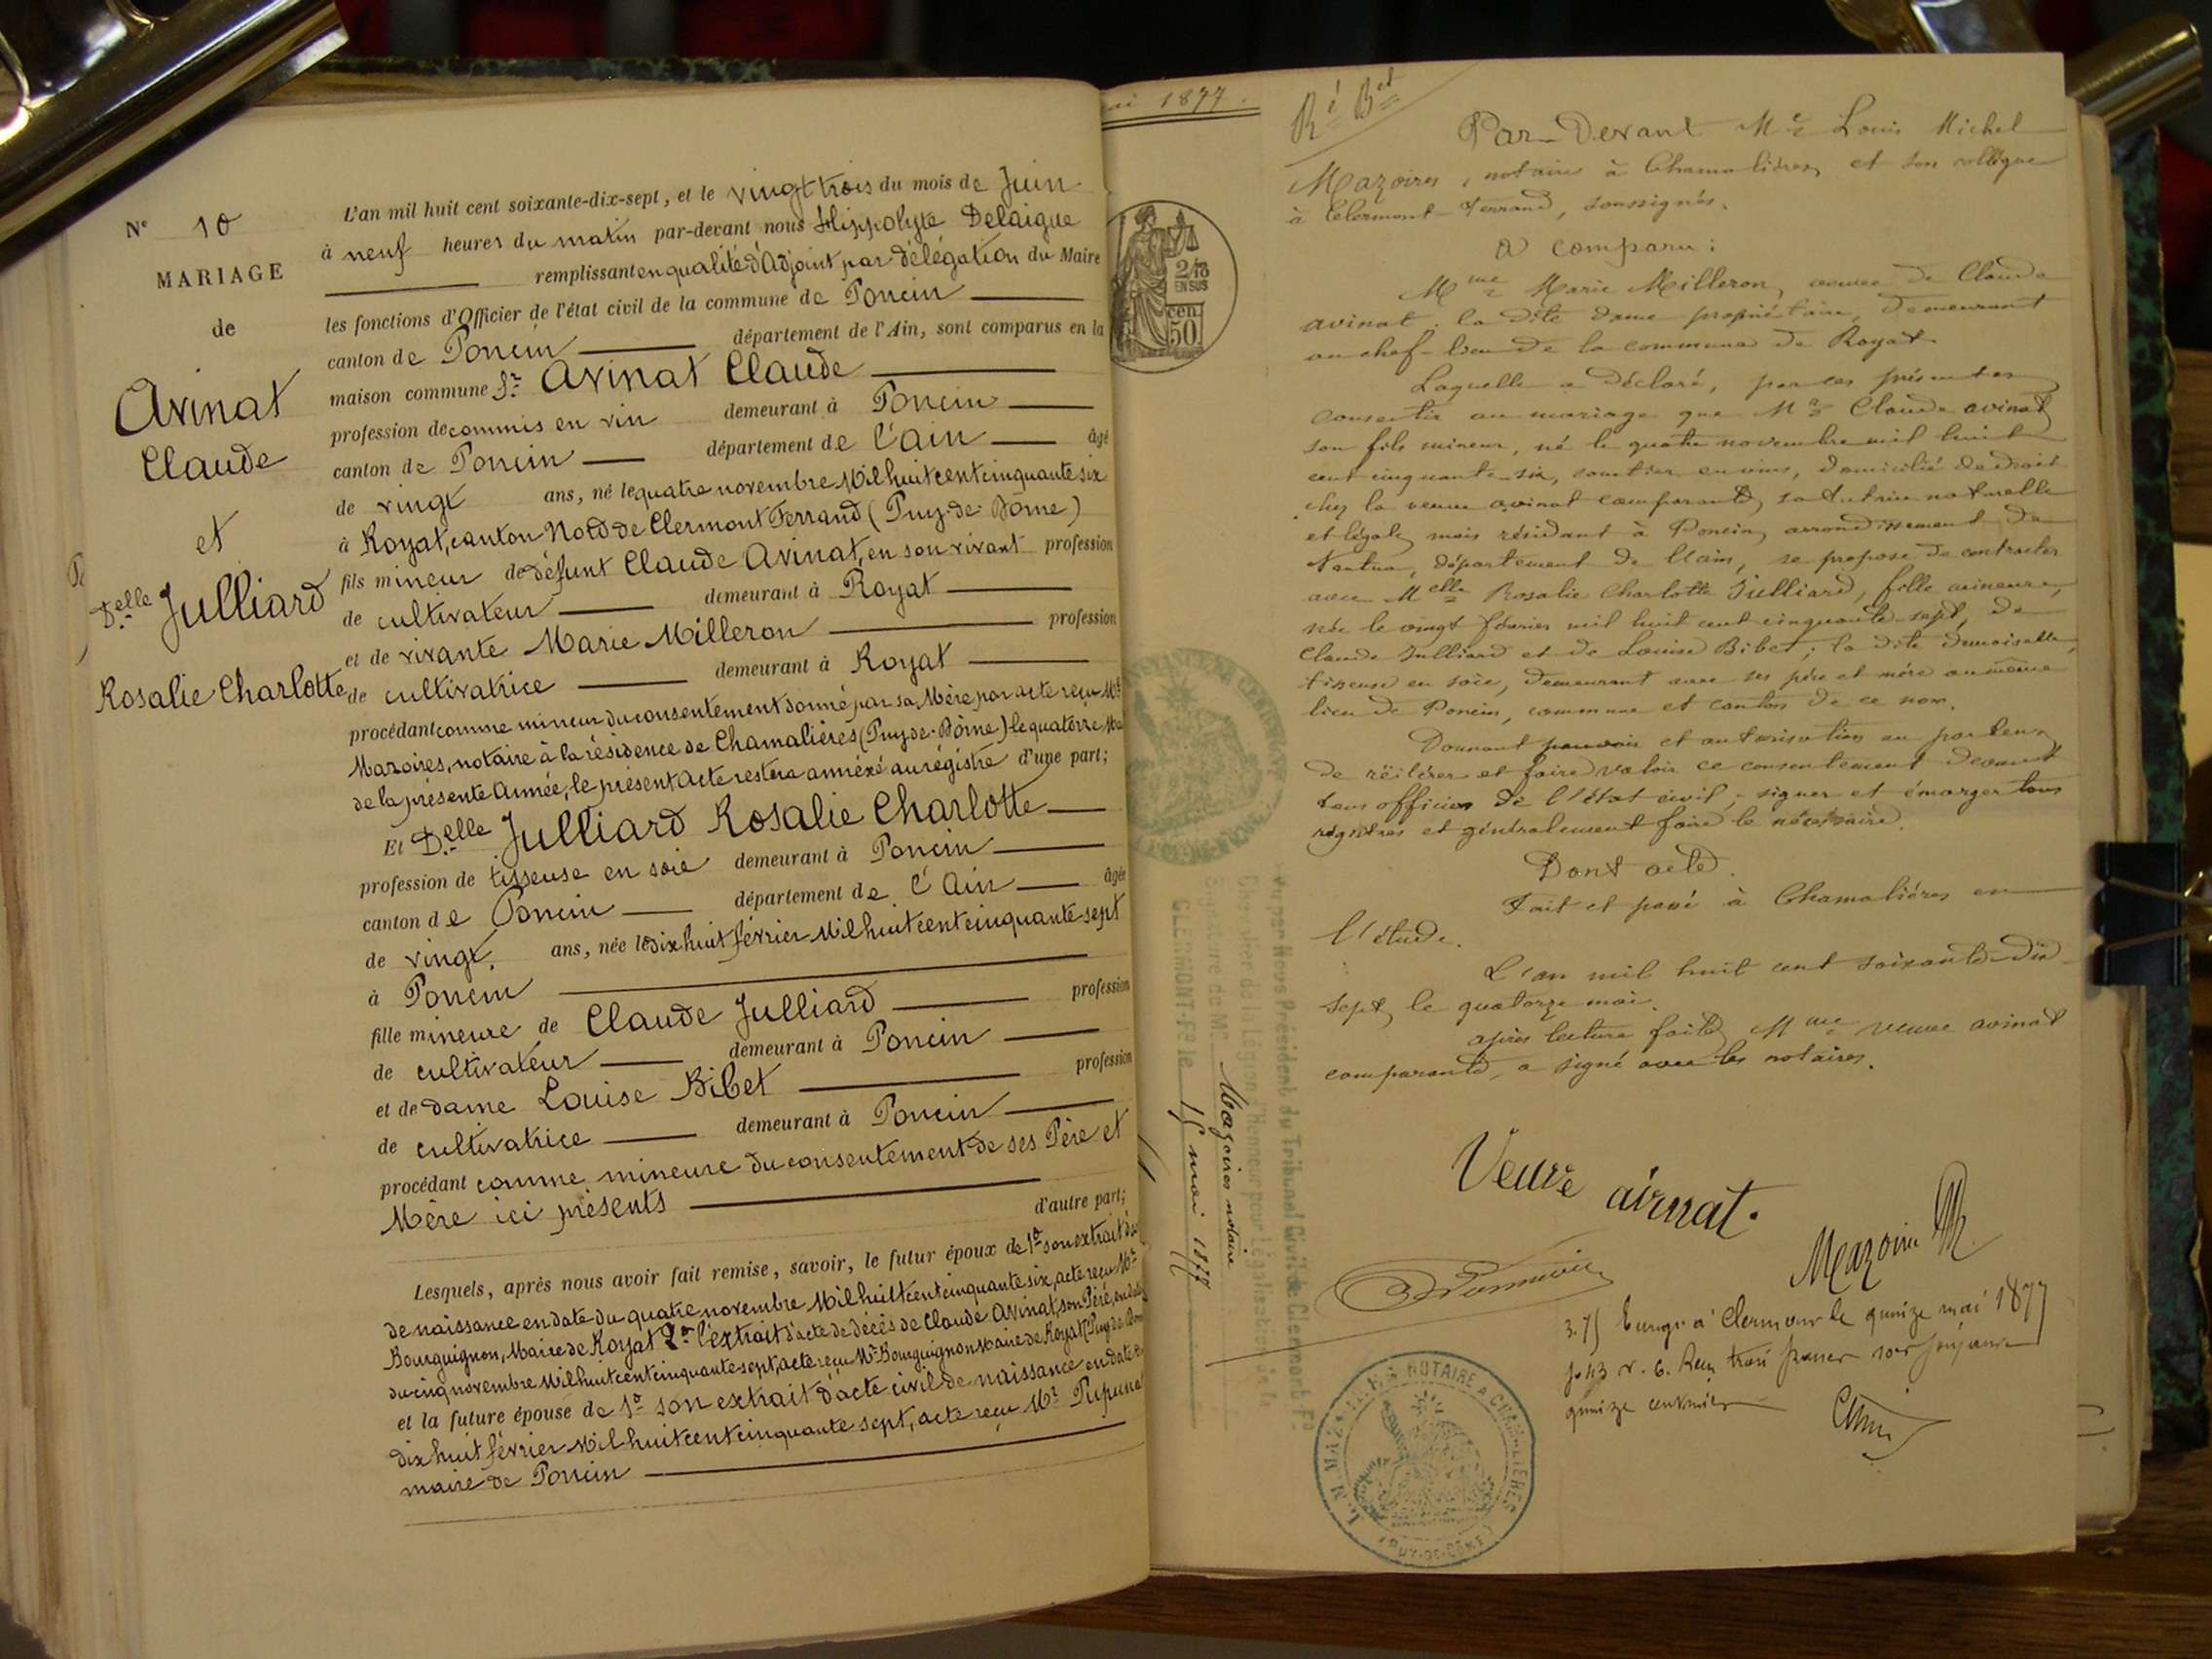 N° 10
MARIAGE
de
Avinat
Claude
et
D.elle Julliard
Rosalie Charlotte
L'an mil huit cent soixante-dix-sept, et le vingt trois du mois de Juin
à neuf heures du matin par-devant nous Hippolyte Delaigue
remplissant en qualité d'Adjoint par délégation du Maire
les fonctions d'Officier de l'état civil de la commune de Poncin
canton de Poncin département de l'Ain, sont comparus en la
maison commune Sr Avinat Claude
profession de commis en vin demeurant à Poncin
canton de Poncin département de l'Ain âgé
de vingt ans, né le quatre novembre Mil huit cent cinquante six
à Royat, canton Nord de Clermont Ferrand (Puy-de-Dôme)
fils mineur de défunt Claude Avinat, en son vivant profession
de cultivateur demeurant à Royat
et de vivante Marie Milleron profession
de cultivatrice demeurant à Royat
procédant comme mineur du consentement donné par sa Mère par acte reçu Me
Mazoires, notaire à la résidence de Chamalières (Puy-de-Dôme) le quatorze Mai
de la présente Année, le présent Acte restera annéxé au régistre d'une part;
Et D.elle Julliard Rosalie Charlotte
profession de tisseuse en soie demeurant à Poncin
canton de Poncin département de l'Ain âgée
de vingt ans, née le dix huit février Mil huit cent cinquante sept
à Poncin
fille mineure de Claude Julliard profession
de cultivateur demeurant à Poncin
et de dame Louise Bibet profession
de cultivatrice demeurant à Poncin
procédant comme mineure du consentement de ses Père et
Mère ici présents d'autre part;
Lesquels, après nous avoir fait remise, savoir, le futur époux de 1° son extrait
de naissance en date du quatre novembre Mil huit cent cinquante six, acte reçu Mr
Bourguignon, Maire de Royat 2° l'extrait d'acte de décès de Claude Avinat, son Père, en date
du cinq novembre Mil huit cent cinquante sept, acte reçu Mr Bourguignon Maire de Royat (Puy de Dôme
et la future épouse de 1° son extrait d'acte civil de naissance en date
dix huit février Mil huit cent cinquante sept, acte reçu Mr Pupunat
maire de Poncin
ai 1877.
2/10
EN SUS
50 cen
Par-Devant Me Louis Michel
Mazoires, notaire à Chamalières, et son collègue
à Clermont-Ferrand, soussignés.
A comparu:
Mme Marie Milleron, veuve de Claude
avinat. la dite dame propriétaire, demeurant
au chef-lieu de la commune de Royat.
Laquelle a déclaré, par ces présentes
consentir au mariage que Mr Claude avinat
son fils mineur, né le quatre novembre mil huit
cent cinquante-six, courtier en vins, domicilié de droit
chez la veuve avinat comparante, sa tutrice naturelle
et légale, mais résidant à Poncin, arrondissement de
Nantua, département de l'ain, se propose de contracter
avec Melle Rosalie Charlotte Julliard, fille mineure,
née le vingt février mil huit cent cinquante-sept, de
Claude Julliard et de Louise Bibet; la dite demoiselle,
tisseuse en soie, demeurant avec ses père et mère au même
lieu de Poncin, commune et canton de ce nom.
Donnant pouvoir et autorisation au porteur
de réitérer et faire valoir ce consentement devant
tous officiers de l'état civil, signer et émarger tous
registres et généralement faire le nécessaire.
Dont acte.
Fait et passé à Chamalières en
l'étude.
L'an mil huit cent soixante-dix-
sept, le quatorze mai.
après lecture faite, Mme veuve avinat
comparante, a signé avec les notaires.
Veuve avinat.
Mazoires
Enregé à Clermont le quinze mai 1877
quinze centimes
Vu par Nous Président du Tribunal Civil de Clermont-Fd
Chevalier de la Légion d'Honneur pour Légalisation de la
Signature de Mr Mazoires notaire
CLERMONT-Fd le 15 mai 1877
NOTAIRE A CHAMALIÈRES
(PUY-DE-DÔME)